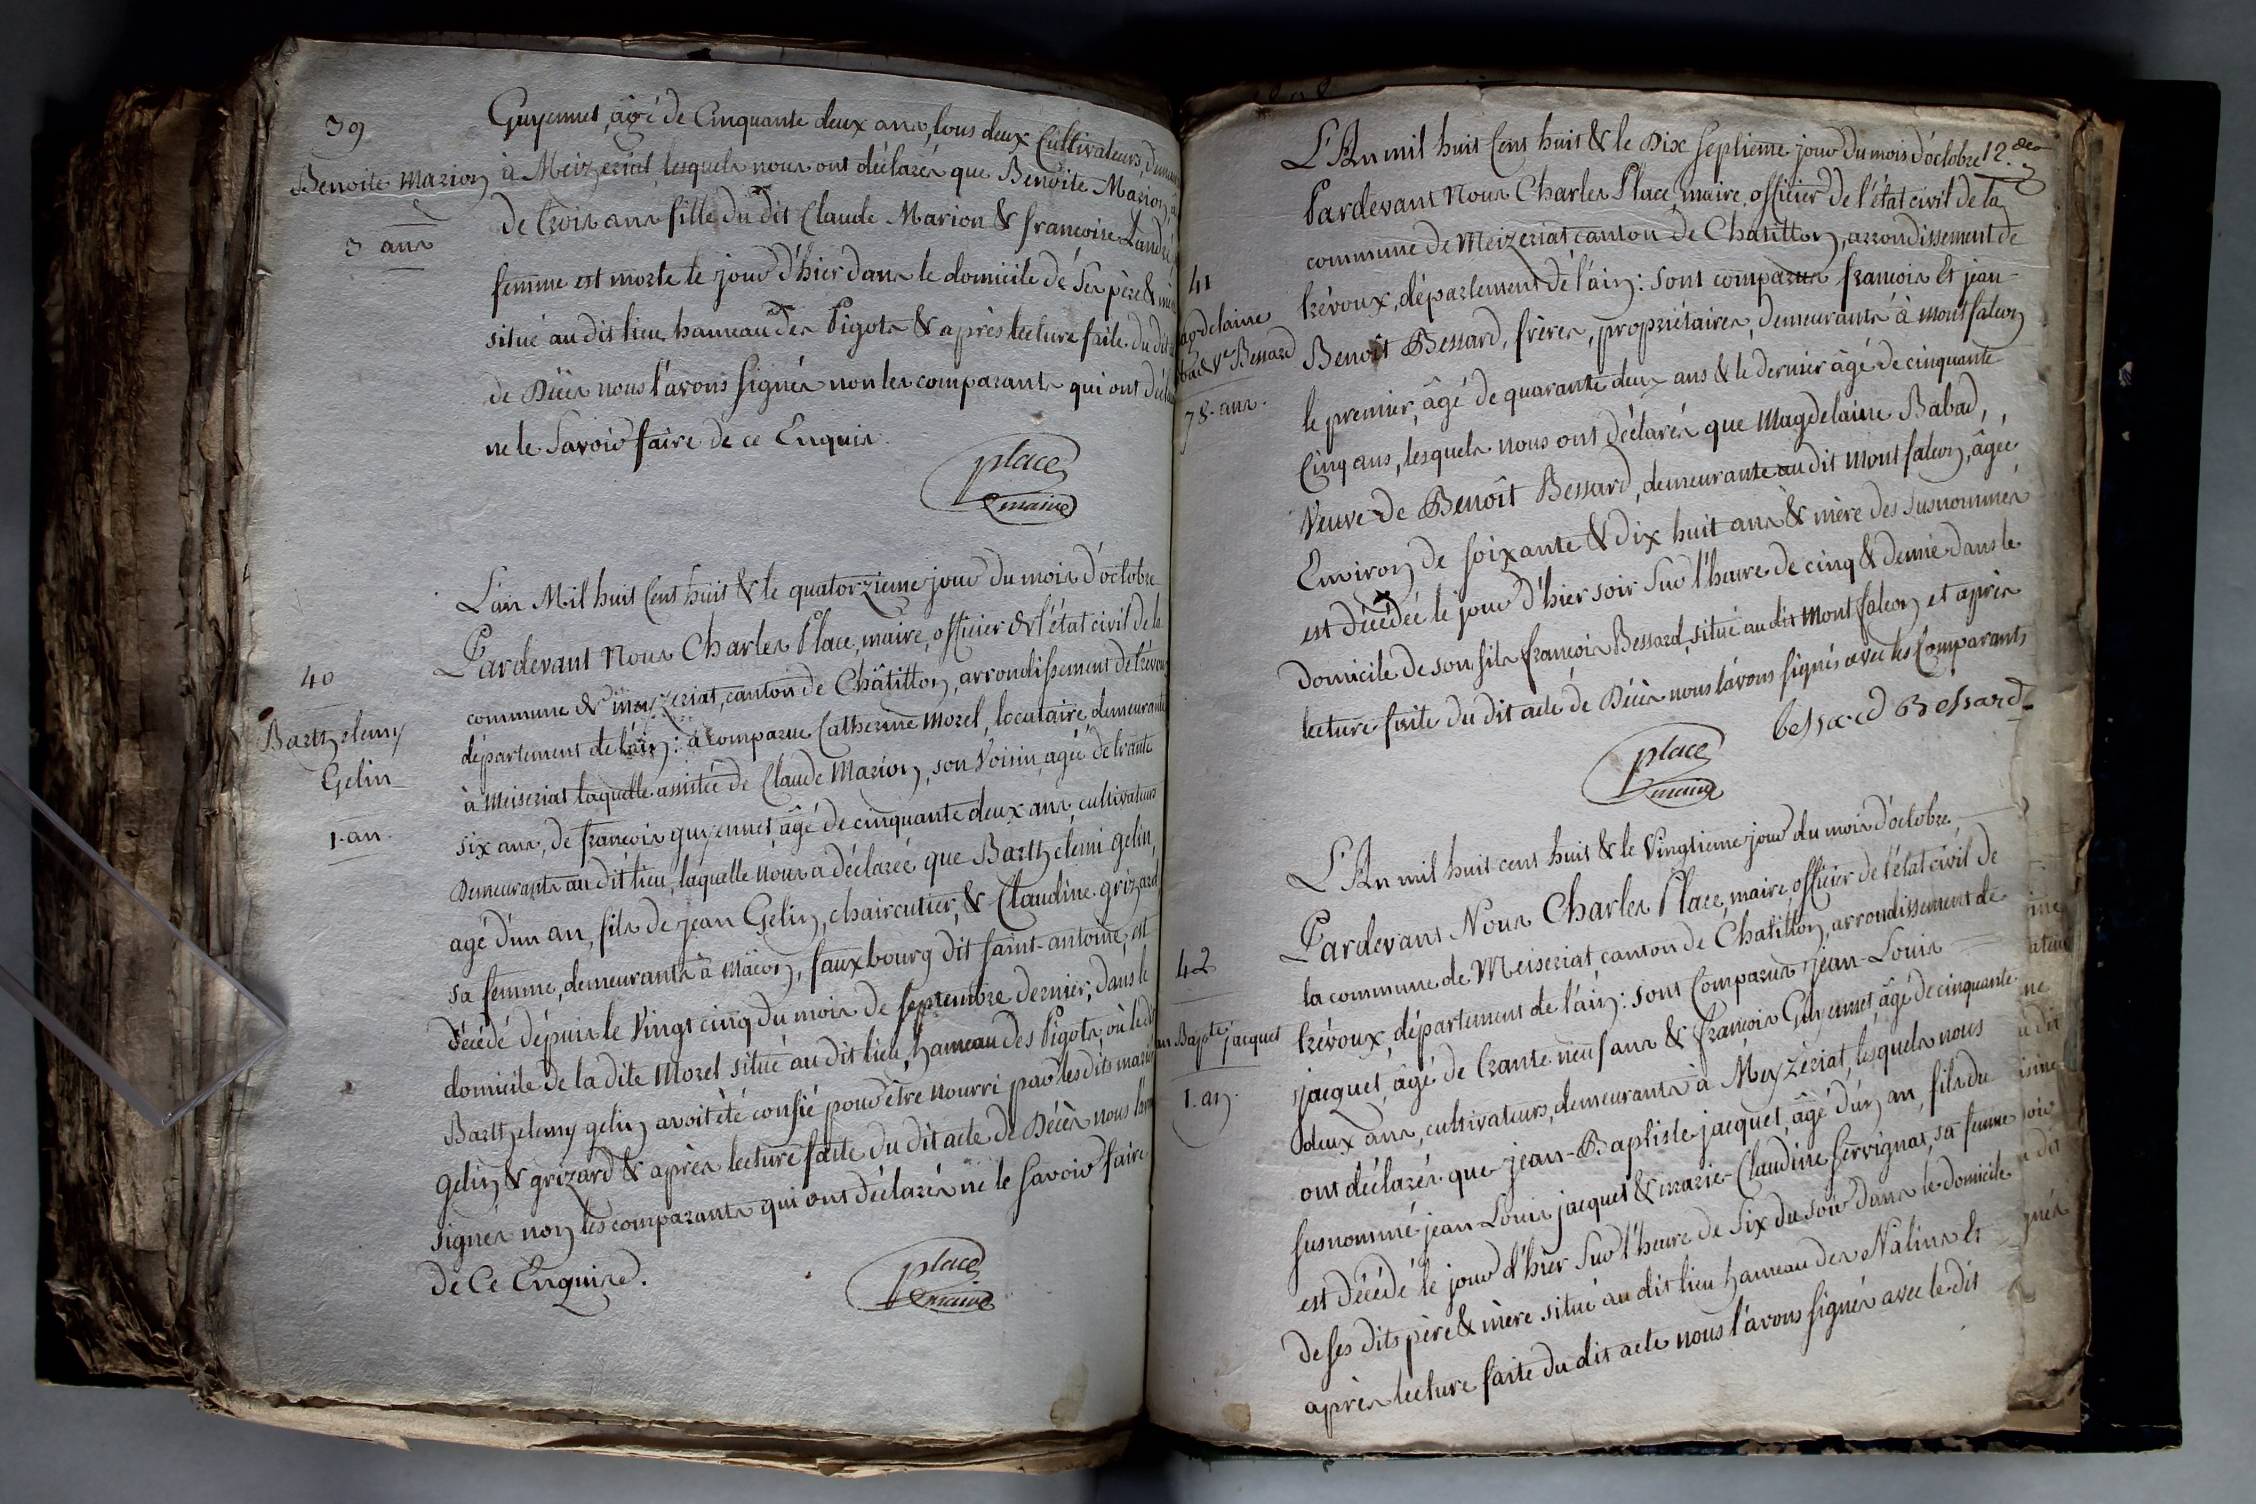 39
Benoite Marion
3 ans
Guyennet, âgé de Cinquante deux ans, tous deux Cultivateurs,
à Meizeriat, lesquels nous ont déclarés que Benoite Marion,
de trois ans fille du dit Claude Marion & francoise Landré,
femme est morte le jour d'hier dans le domicile de Ses père &
situé au dit lieu hameau des Pigots & après lecture faite du dit
de Décès nous l'avons signés non les comparants qui ont
ne le Savoir faire de ce Enquis.
place
maire
40
Barthelemy
Gelin
1. an.
L'an Mil huit Cent huit & le quatorzieme jour du mois d'octobre
Pardevant Nous Charles Place, maire, officier de l'état civil de la
commune de meyzeriat, canton de Châtillon, arrondissement de Trévoux
département de l'ain : à comparue Catherine Morel, locataire, demeurante
à Meiseriat laquelle assistée de Claude Marion, son Voisin, agée de trante
six ans, de francois guyennet âgé de cinquante deux ans, cultivateurs
Demeurants au dit lieu, laquelle nous a déclarée que Barthelemi gelin,
agé d'un an, fils de jean Gelin, chaircutier, & Claudine grizard
sa femme, demeurants à Mâcon, fauxbourg dit saint-antoine, est
décédé depuis le Vingt cinq du mois de septembre dernier, dans le
domicile de la dite Morel situé au dit lieu, hameau des Pigots, où le dit
Barthelemy gelin avoit été confié pour être nourri par les dits mariés
gelin & grizard & après lecture faite du dit acte de Décès nous l'avons
signés non les comparants qui ont déclarés ne le savoir faire
de Ce Enquire.
place
maire
L'An mil huit Cent huit & le Dix septieme jour du mois d'octobre 12.
Pardevant Nous Charles Place, maire, officier de l'état civil de la
commune de Meizeriat, canton de Chatillon, arrondissement de
trévoux, département de l'ain : sont comparus francois Et jean-
41
Magdelaine
Babad Ve Bessard
78. ans.
Benoît Bessard, frères, propriétaires, demeurants à montfalcon
le premier, âgé de quarante deux ans & le dernier âgé de cinquante
Cinq ans, lesquels nous ont déclarés que Magdelaine Babad,
Veuve de Benoît Bessard, demeurante au dit montfalcon, âgée
Environ de soixante & dix huit ans & mère des susnommés
est décédée le jour d'hier soir sur l'heure de cinq & demie dans le
domicile de son fils francois Bessard, situé au dit montfalcon et après
lecture faite du dit acte de Décès nous l'avons signés avec les Comparants
bessard Bessard
place
maire
L'An mil huit cent huit & le Vingtieme jour du mois d'octobre
Pardevant Nous Charles Place, maire, officier de l'état civil de
la commune de Meiseriat canton de Chatillon, arrondissement de
42
Jean Bapte jacquet
1. an.
trévoux, département de l'ain : sont Comparus jean-Louis
jacquet, âgé de trante neuf ans & francois Guyennet, âgé de cinquante
deux ans, cultivateurs, demeurants à Meyzériat, lesquels nous
ont déclarés que jean-Baptiste jacquet, âgé d'un an, fils du
susnommé jean Louis jacquet & marie-Claudine servignat, sa femme
est décédé le jour d'hier sur l'heure de six du soir dans le domicile
de ses dits père & mère situé au dit lieu hameau des Nalins Et
après lecture faite du dit acte nous l'avons signés avec le dit